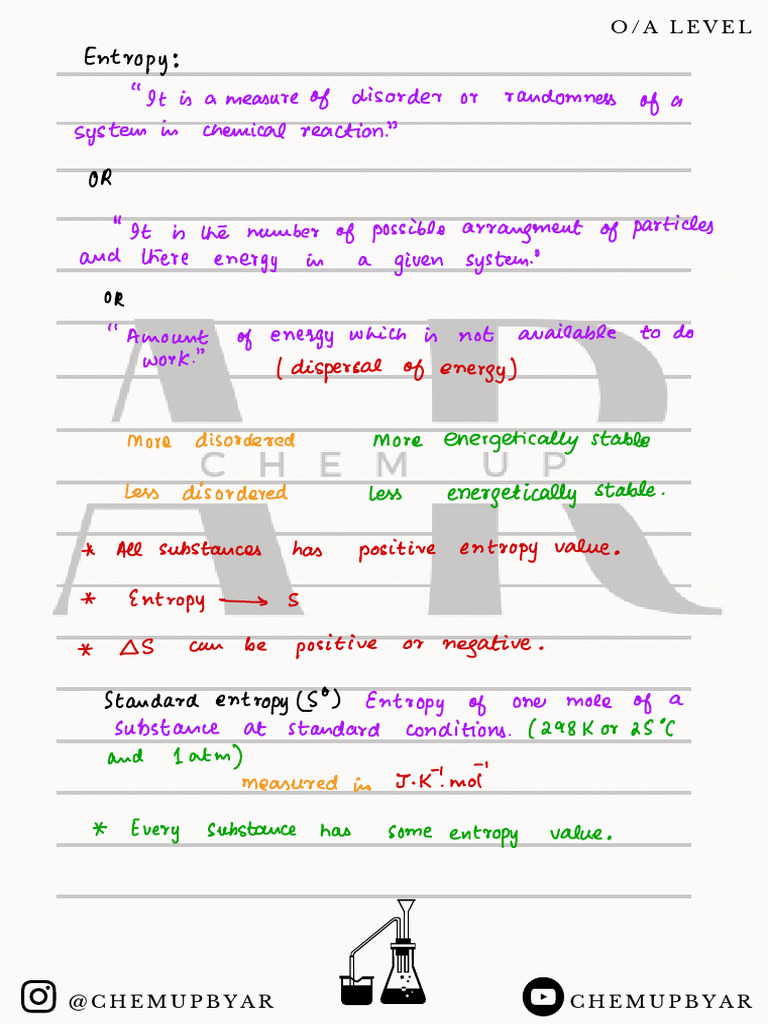 O/A LEVEL
Entropy:
"It is a measure of disorder or randomness of a
system in chemical reaction."
OR
"It is the number of possible arrangment of particles
and there energy in a given system."
OR
"Amount of energy which is not available to do
work." (dispersal of energy)
More disordered More energetically stable
CHEM UP
Less disordered less energetically stable.
* All substances has positive entropy value.
* Entropy ⟶ S
* ΔS can be positive or negative.
Standard entropy (S°) Entropy of one mole of a
substance at standard conditions. (298K or 25°C
and 1atm)
measured in J.K⁻¹.mol⁻¹
* Every substance has some entropy value.
AR
@CHEMUPBYAR CHEMUPBYAR